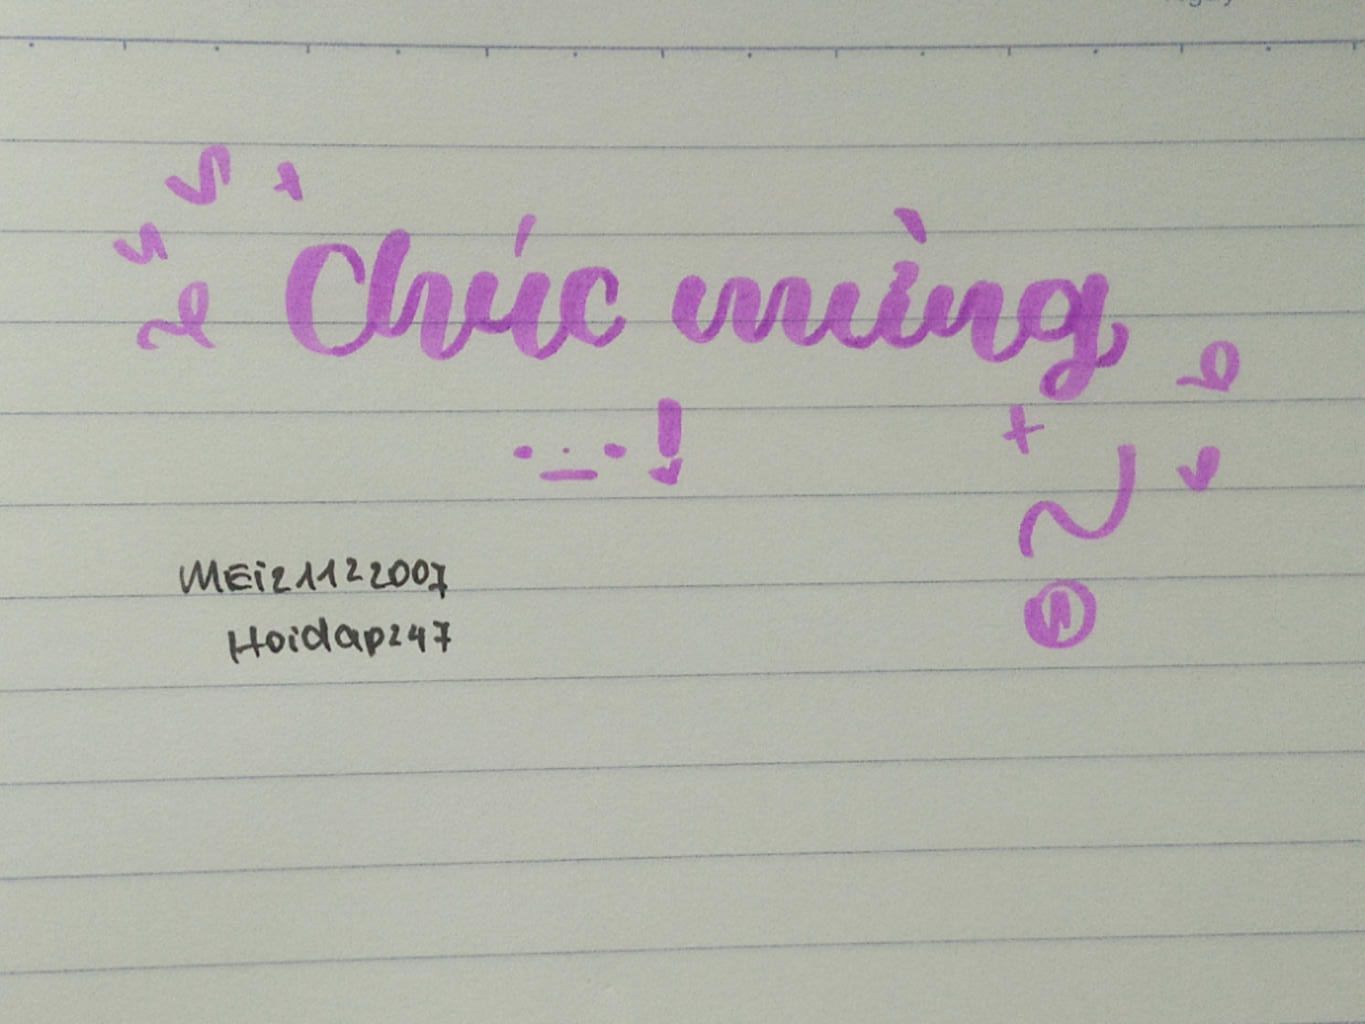 Chúc mừng
!
MEi21122007
Hoidap247